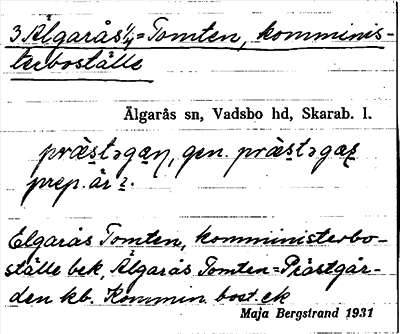 3 Älgarås 1/4 = Tomten, komminis-
terboställe
Älgarås sn, Vadsbo hd, Skarab. l.
præ̀stəgaṇ, gen. præ̀stəgaṣ
prep. är 2.
Elgarås Tomten, komministerbo-
ställe bek, Älgarås Tomten = Prästgår-
den kb. Kommin. bost. ek
Maja Bergstrand 1931